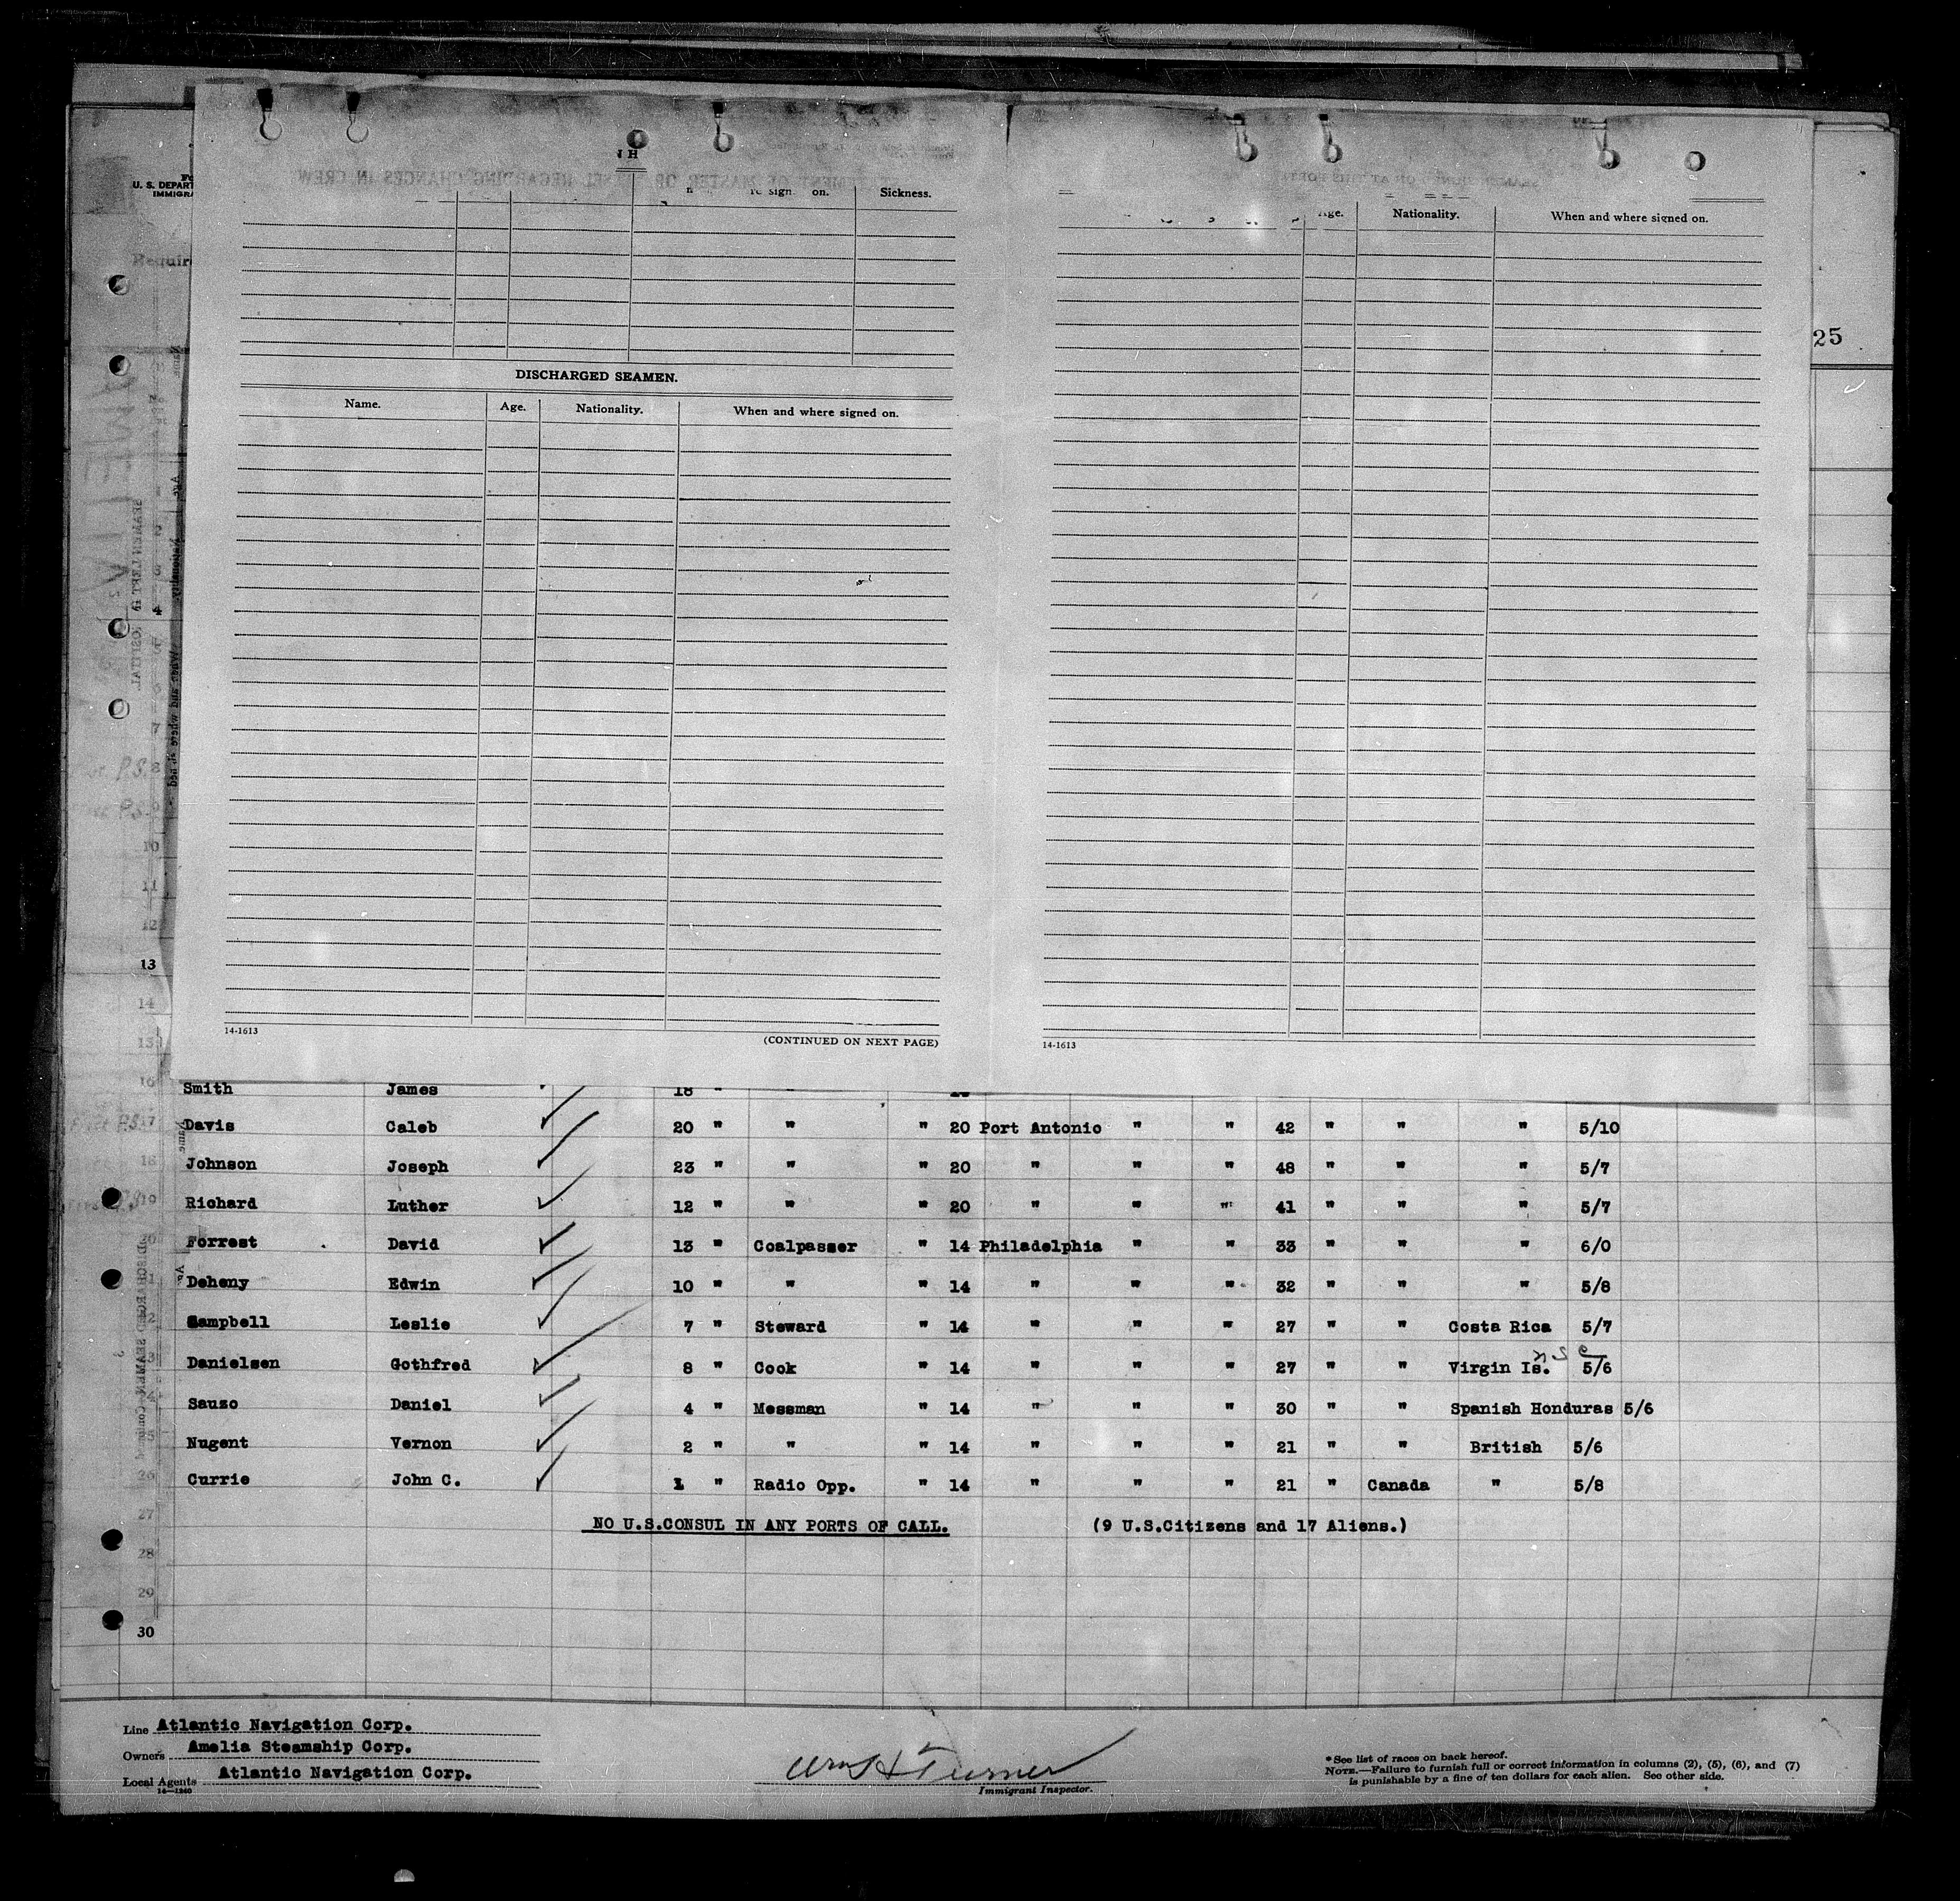 U. S. DEPART
IMMIGRA
Requir
Sickness.
DISCHARGED SEAMEN.
Name. Age. Nationality. When and where signed on.
14-1613
(CONTINUED ON NEXT PAGE)
Age. Nationality. When and where signed on.
14-1613
25
7
8
9
10
11
12
13
14
Smith James 18 "
17 Davis Caleb 20 " " " 20 Port Antonio " " 42 " " " 5/10
18 Johnson Joseph 23 " " " 20 " " " 48 " " " 5/7
19 Richard Luther 12 " " " 20 " " " 41 " " " 5/7
Forrest David 13 " Coalpasser " 14 Philadelphia " " 33 " " " 6/0
Deheny Edwin 10 " " " 14 " " " 32 " " " 5/8
Campbell Leslie 7 " Steward " 14 " " " 27 " " Costa Rica 5/7
Danielsen Gothfred 8 " Cook " 14 " " " 27 " " Virgin Is. 5/6
Sauzo Daniel 4 " Messman " 14 " " " 30 " " Spanish Honduras 5/6
Nugent Vernon 2 " " " 14 " " " 21 " " British 5/6
26 Currie John C. 1 " Radio Opp. " 14 " " " 21 " Canada " 5/8
27 NO U.S.CONSUL IN ANY PORTS OF CALL. (9 U.S.Citizens and 17 Aliens.)
28
29
30
Line Atlantic Navigation Corp.
Owners Amelia Steamship Corp.
Local Agents Atlantic Navigation Corp.
14-1240
Wm H Turner
Immigrant Inspector.
* See list of races on back hereof.
NOTE.—Failure to furnish full or correct information in columns (2), (5), (6), and (7)
is punishable by a fine of ten dollars for each alien. See other side.